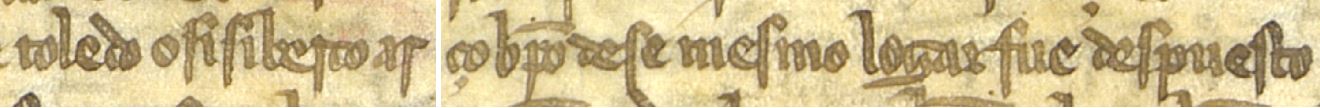 toledo osisiberto ar çobpo dese mesmo logar fue despuesto